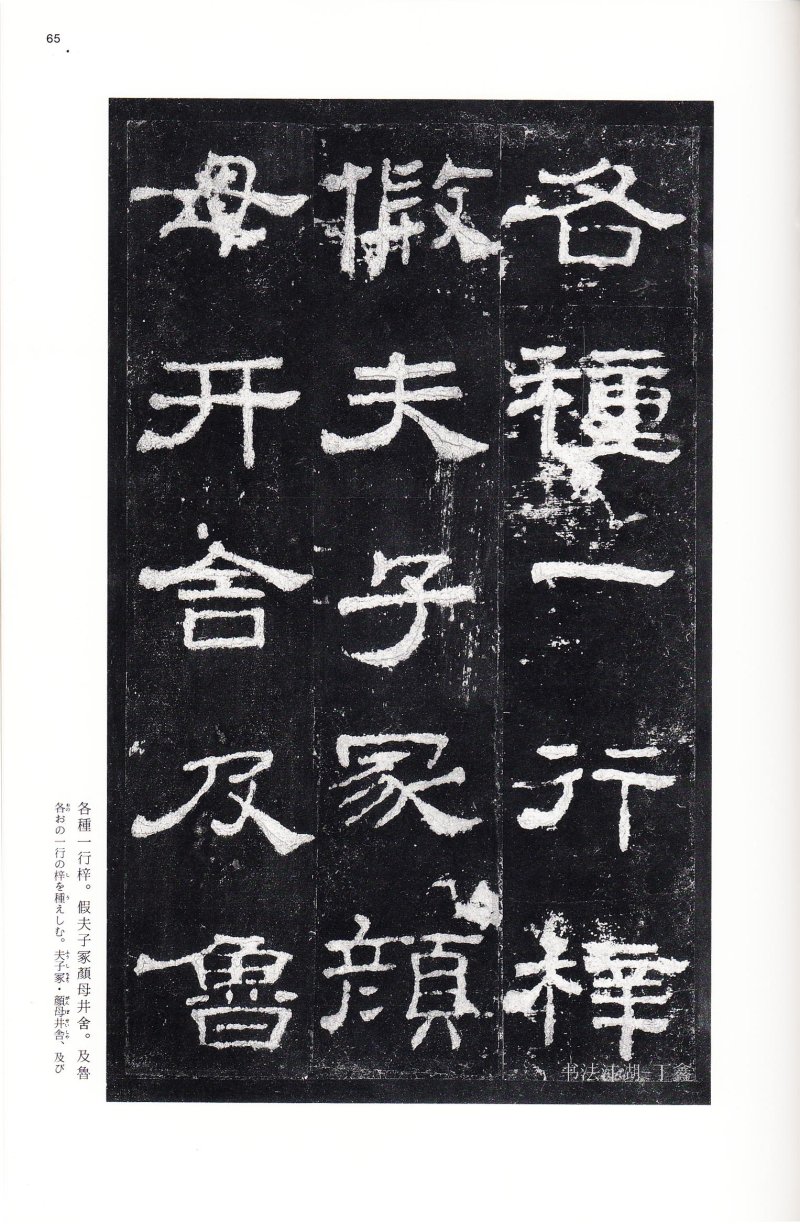 65
各種一行梓
假夫子冢顏
母井舍及魯
各種一行梓。假夫子冢顏母井舍。及魯
各おの一行の梓を種えしむ。夫子冢・顏母井舍、及び
书法江湖 丁鑫